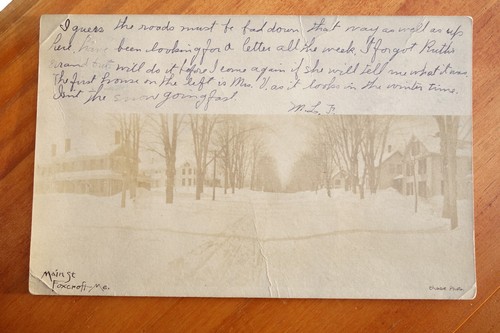 I guess the roads must be bad down that way as well as up
here, have been looking for a letter all the week, I forgot Ruths
errand but will do it before I come again if she will tell me what it was
The first house on the left is Mrs. V. as it looks in the winter time.
Isnt the snow going fast
M. L. F.
Main St
Foxcroft-Me.